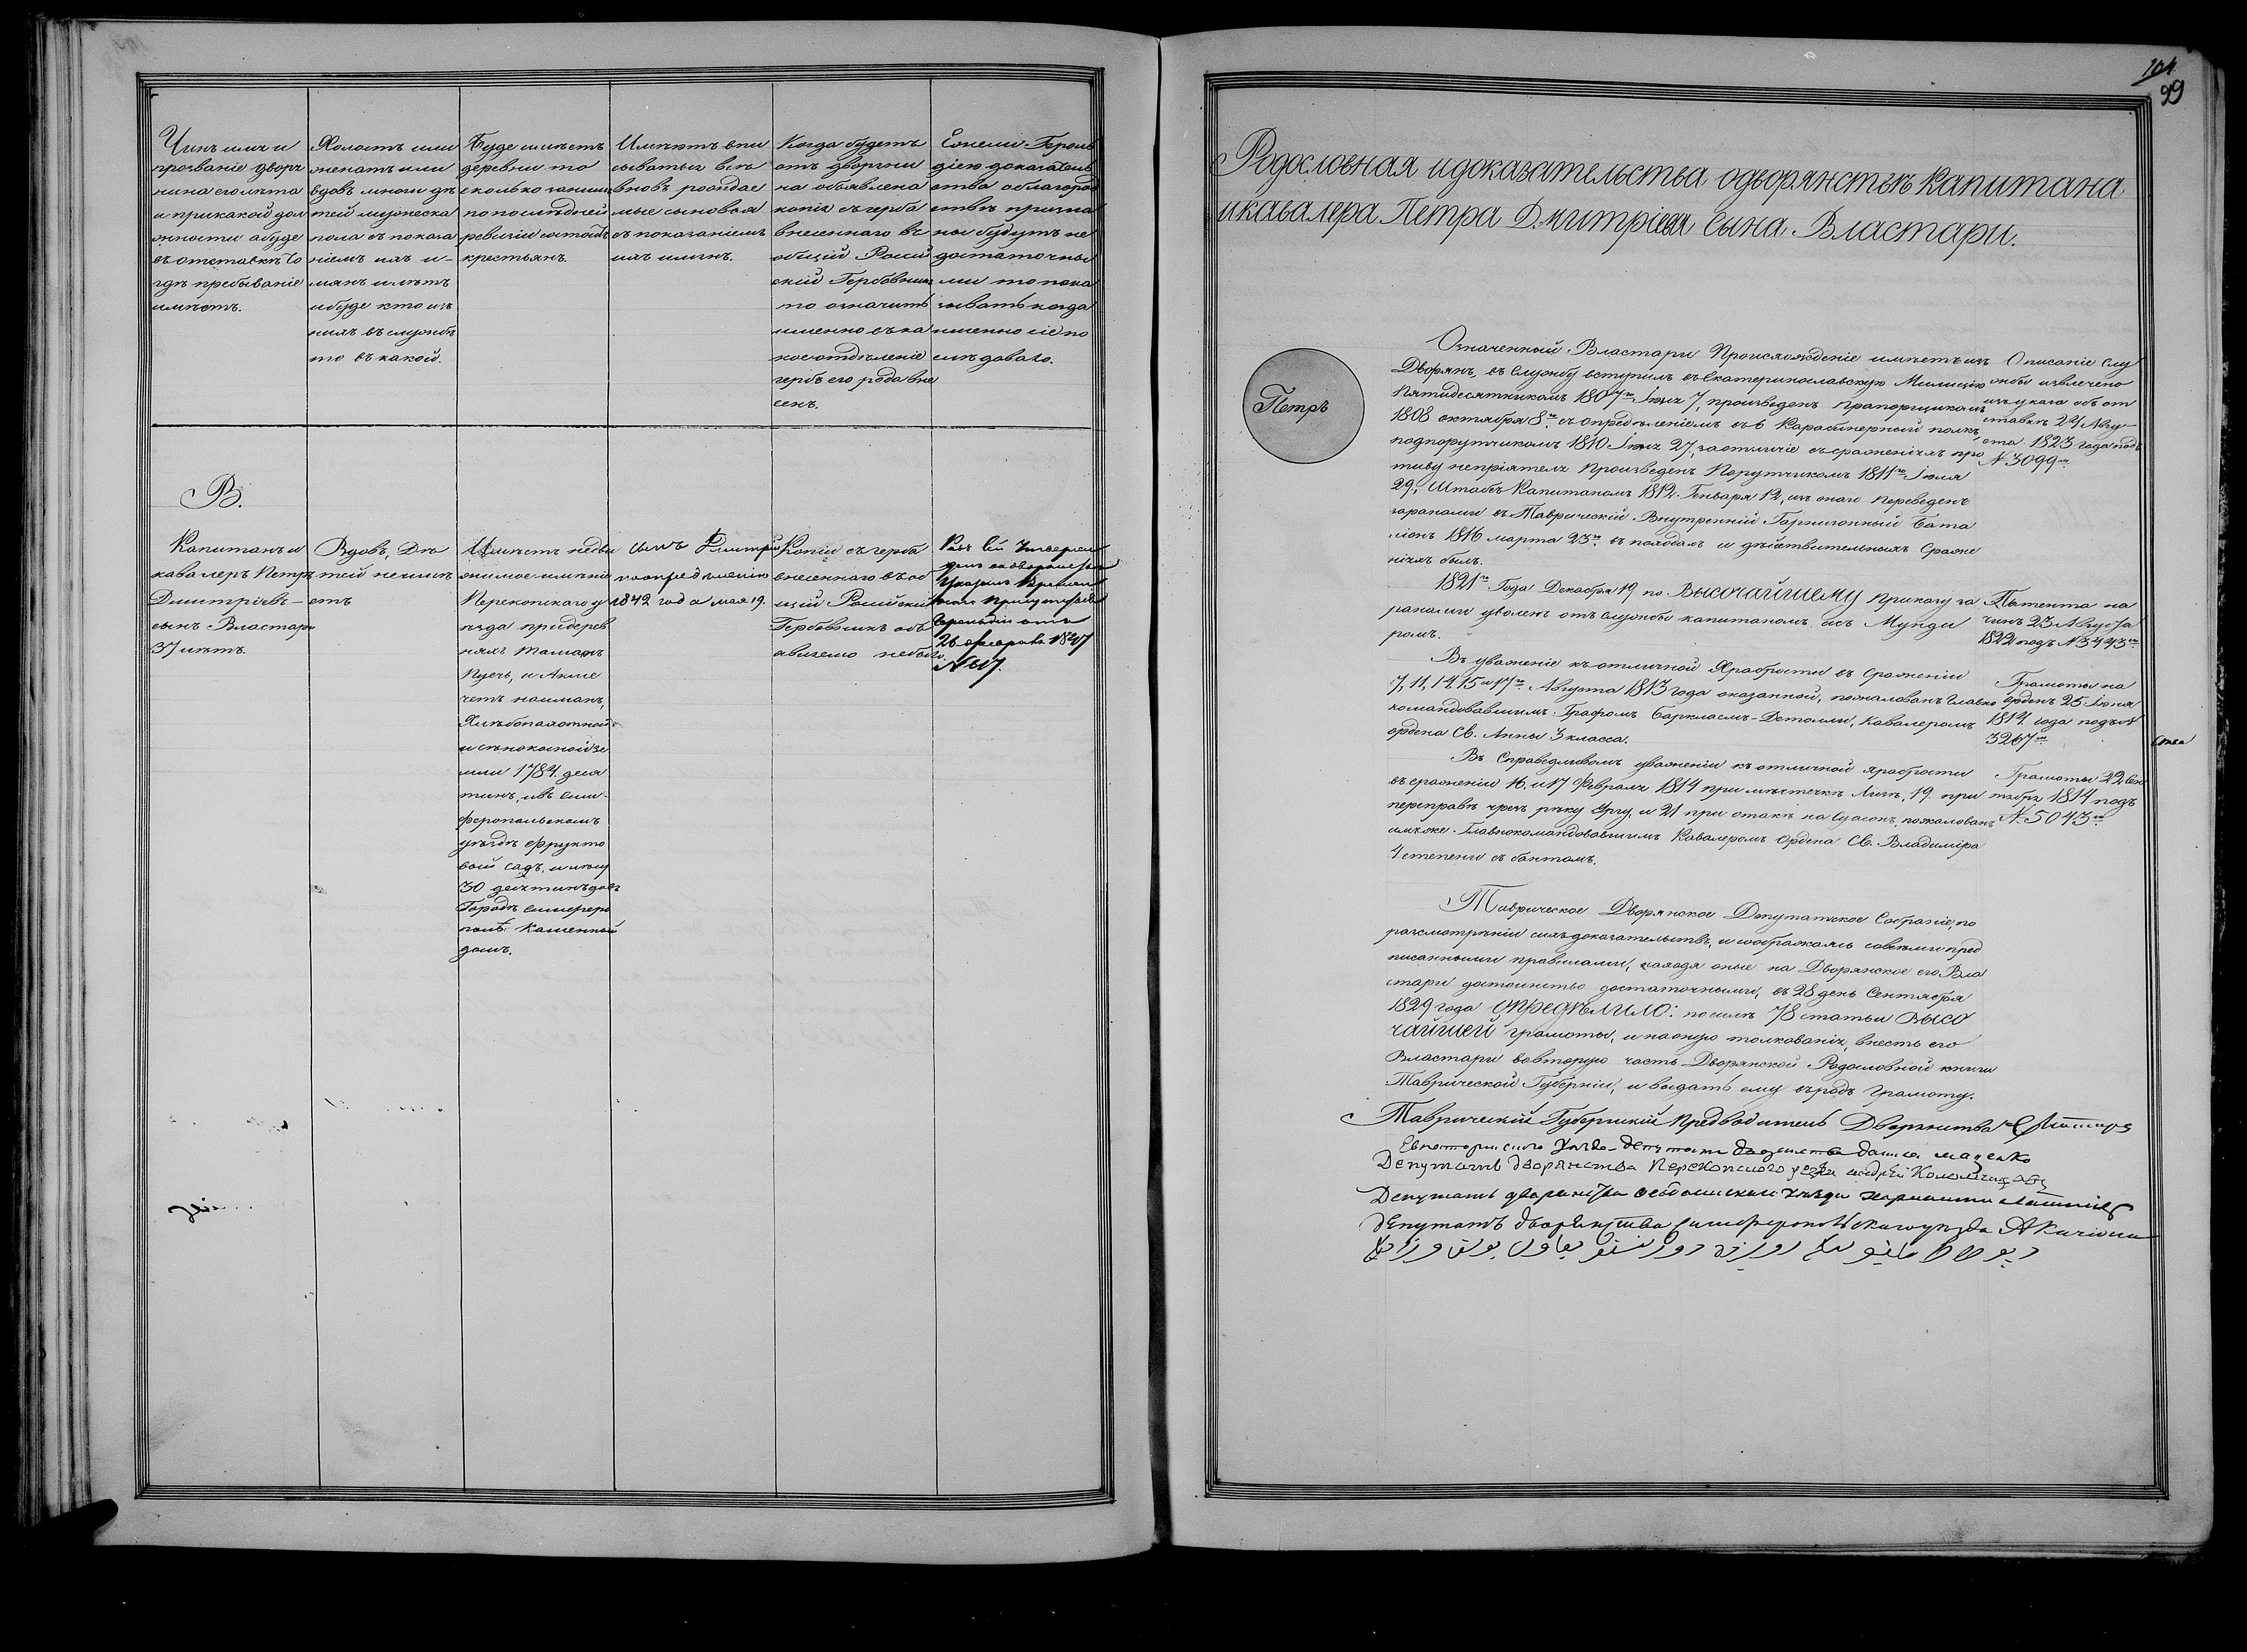 Чинъ имя и
прозваніе дворя
нина его лѣта
и при какой дол
жности а буде
въ отставкѣ то
гдѣ пребываніе
имѣетъ.
Холостъ или
женатъ или
вдовъ много дѣ
тей мужеска
пола съ показа
ніемъ ихъ и-
мянъ и лѣтъ
и буде кто изъ
нихъ въ службѣ
то въ какой.
Буде имѣетъ
деревни то
сколько за ними
по послѣдней
ревизіи состоитъ
крестьянъ.
Имѣютъ впи
сываться всѣ
вновь рождае
мые сыновья
съ показаніемъ
ихъ имянъ.
Когда будетъ
отъ дворяни
на объявлена
копія съ герба
внесеннаго въ
общій Россій
скій Гербовникъ
то означить
именно съ ка
кое отдѣленіе
гербъ его рода вне
сенъ.
Ежели Героль
діею доказатель
ства о благород
ствѣ призна
ны будутъ не
достаточны
ми то пока
зывать когда
именно сіе по
слѣдовало.
В.
Капитанъ и
кавалеръ Петръ
Дмитріевъ-
сынъ Властари
37 лѣтъ
Вдовъ, Дѣ
тей не имѣ
етъ
Имѣетъ недви
жимое имѣніе
Перекопскаго у
ѣзда при дерев
няхъ Тамакъ
Кучь, и Акме
четь найманъ,
Хлѣбопахотной
и сѣнокосной зе
мли 1784. деся
тинъ, и въ Сим-
феропольскомъ
уѣздѣ фрукто
вый садъ, и лѣсу
30 десятинъ да въ
Городѣ Симферо
полѣ каменный
домъ.
сынъ Дмитрій
по опредѣленію
1842 года мая 19.
Копіи съ герба
внесеннаго въ об
щій Россійскій
Гербовникъ объ
авляемо небыло.
Родъ сей Утверж
денъ въ дворянствѣ
Указомъ Времен
наго Присутствія
Герольдіи отъ
26 февраля 1847
№ 617.
104
99
Родословная и доказательства о дворянствѣ Капитана
и кавалера Петра Дмитріева сына Властари.
Петръ
Означенный Властари Происхожденіе имѣетъ изъ
Дворянъ, въ Службу вступилъ въ Екатеринославскую Милицію
Пятидесятникомъ 1807го Іюля 7, произведенъ прапорщикомъ
1808 октября 8го съ опредѣленіемъ въ 6 Карабинерный полкъ,
подпорутчикомъ 1810. Іюля 27, за отличіе въ сраженіяхъ про
тиву непріятеля Произведенъ Порутчикомъ 1811го Іюля
29, Штабсъ Капитаномъ 1812. Генваря 12, изъ онаго переведенъ
за ранами въ Таврическій Внутренній Гарнизонный бата
ліонъ 1816 марта 23го въ походахъ и дѣйствительныхъ Сраже
ніяхъ былъ.
Описаніе Слу
жбы извлечено
изъ указа объ от
ставкѣ 24 Авгу-
ста 1823 года подъ
№ 3099мъ
1821го Года Декабря 19 по ВЫСОЧАЙШЕМУ приказу за
ранами уволенъ отъ службы капитаномъ и съ Мунди
ромъ.
Патента на
чинъ 23 Августа
1822 подъ № 3443мъ
Въ уваженіе къ отличной Храбрости въ Сраженіи
7, 11, 14. 15 и 17го Августа 1813 года оказанной, пожалованъ Главно
командовавшимъ Графомъ Барклаемъ-Детолли, Кавалеромъ
ордена Св. Анны 3 класса.
Грамоты на
орденъ 25 Іюня
1814. года подъ №
3267мъ
Въ Справедливомъ уваженіи къ отличной храбрости
въ сраженіи 16. и 17 Февраля 1814 при мѣстечкѣ Лизи, 19. при
переправѣ чрезъ рѣку Урку, и 21 при атакѣ на Суасонъ, пожалованъ
имъ же Главнокомандовавшимъ Кавалеромъ Ордена Св. Владиміра
4 степени съ бантомъ.
Грамоты 22 Сен
тября 1814 подъ
№. 5043мъ
Таврическое Дворянское Депутатское Собраніе, по
разсмотрѣніи сихъ доказательствъ, и соображаясь со всѣми пред
писанными правилами, находя оные на Дворянское его Вла
стари достоинство достаточными, въ 28 день Сентября
1829 года ОПРЕДѢЛИЛО: по силѣ 78 статьи ВЫСО
ЧАЙШЕЙ грамоты, и на оную толкованія, внесть его
Властари во вторую часть Дворянской Родословной книги
Таврической Губерніи, и выдать ему въ родъ грамоту.
Таврическій Губернскій Предводитель Дворянства
Депутатъ дворянства Перекопского уезда
Депутатъ дворянства
Депутатъ дворянства Симферопольскаго уѣзда